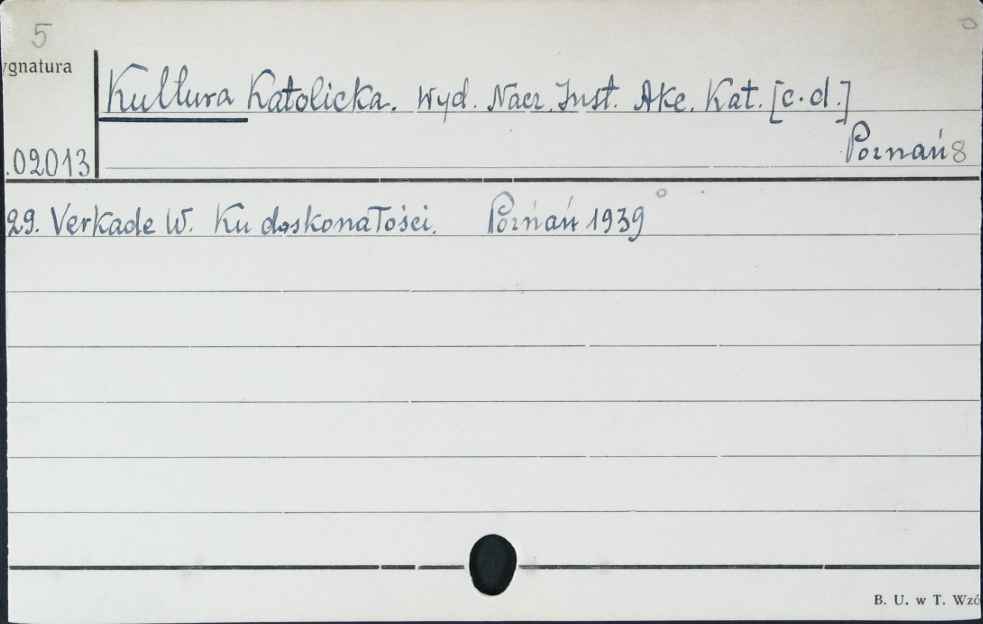 5
ygnatura
Kultura Katolicka. Wyd. Nacz. Inst. Akc. Kat. [c.d.]
.02013
Poznań 8°
29. Verkade W. Ku doskonałości. Poznań 1939
B. U. w T. Wzó